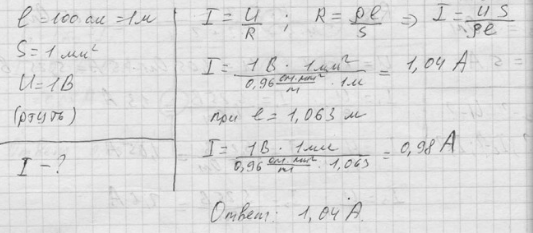 l = 100 см = 1 м
S = 1 мм²
U = 1В
(ртуть)
I - ?
I = U/R ; R = ρl/S ⇒ I = US/ρl
I = 1В · 1мм² / 0,96 Ом·мм²/м · 1м = 1,04 А
при l = 1,063 м
I = 1В · 1мм / 0,96 Ом·мм²/м · 1,063 = 0,98 А
Ответ: 1,04 А.